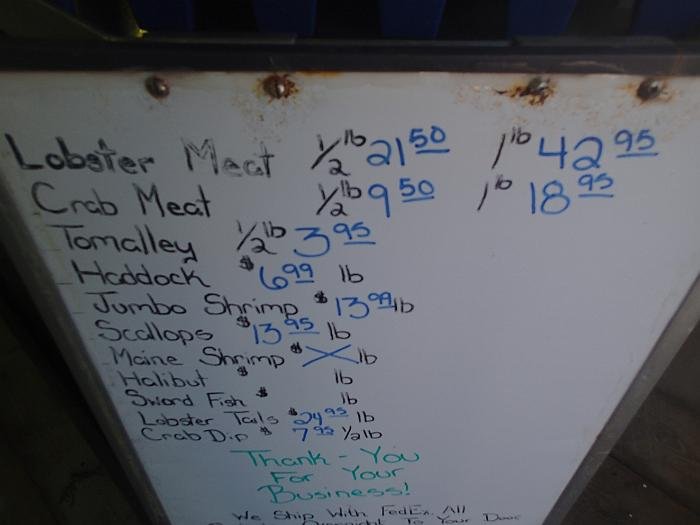 Lobster Meat 1/2 lb 21 50 1 lb 42 95
Crab Meat 1/2 lb 9 50 1 lb 18 95
Tomalley 1/2 lb 3 95
Haddock $ 6 99 lb
Jumbo Shrimp $ 13 99 lb
Scallops $ 13 95 lb
Maine Shrimp $ X lb
Halibut $ lb
Sword Fish $ lb
Lobster Tails $ 24 95 lb
Crab Dip $ 7 95 1/2 lb
Thank - You
For Your
Business!
We Ship With FedEx. All
Overnight To Your Door